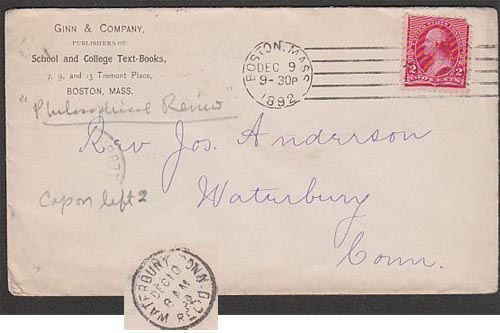 GINN & COMPANY,
PUBLISHERS OF
School and College Text-Books,
7, 9, and 13 Tremont Place,
BOSTON, MASS.
"Philosophical Review"
BOSTON, MASS.
DEC 9
9-30P
1892
2 2
TWO CENTS
Rev. Jos. Anderson
Waterbury
Conn.
Cap on left 2
WATERBURY CONN
DEC 10
8 AM
92
REC'D